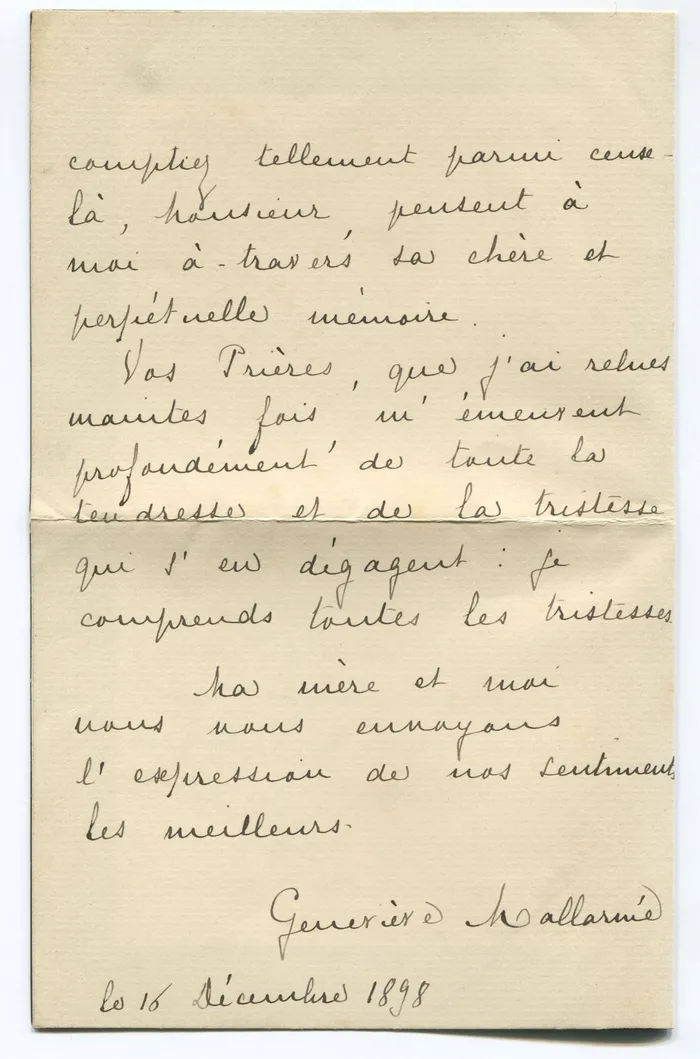 comptiez tellement parmi ceux-
là, Monsieur, pensent à
moi à-travers sa chère et
perpétuelle mémoire.
Vos Prières, que j'ai relues
maintes fois m'émeuvent
profondément de toute la
tendresse et de la tristesse
qui s'en dégagent : je
comprends toutes les tristesses
Ma mère et moi
nous vous envoyons
l'expression de nos sentiments
les meilleurs.
Geneviève Mallarmé
le 16 Décembre 1898